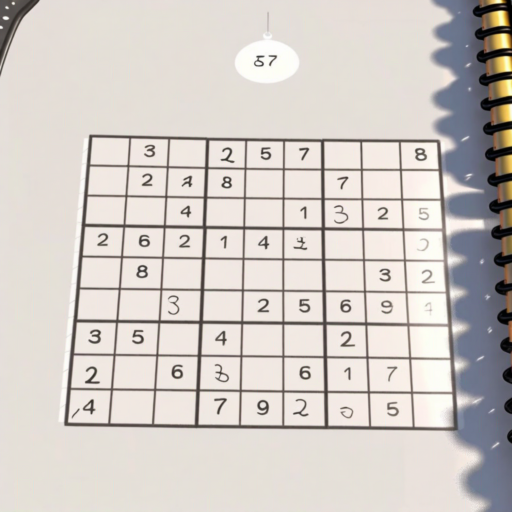 57
3 2 5 7 8
2 8 7
4 1 3 2 5
2 6 2 1 4
8 3 2
3 2 5 6 9
3 5 4 2
2 6 3 6 1 7
4 7 9 2 5